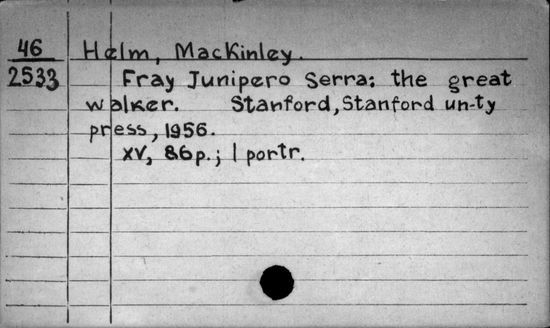 46
2533
Helm, MacKinley.
Fray Junipero Serra: the great
walker. Stanford, Stanford un-ty
press, 1956.
XV, 86p.; 1 portr.